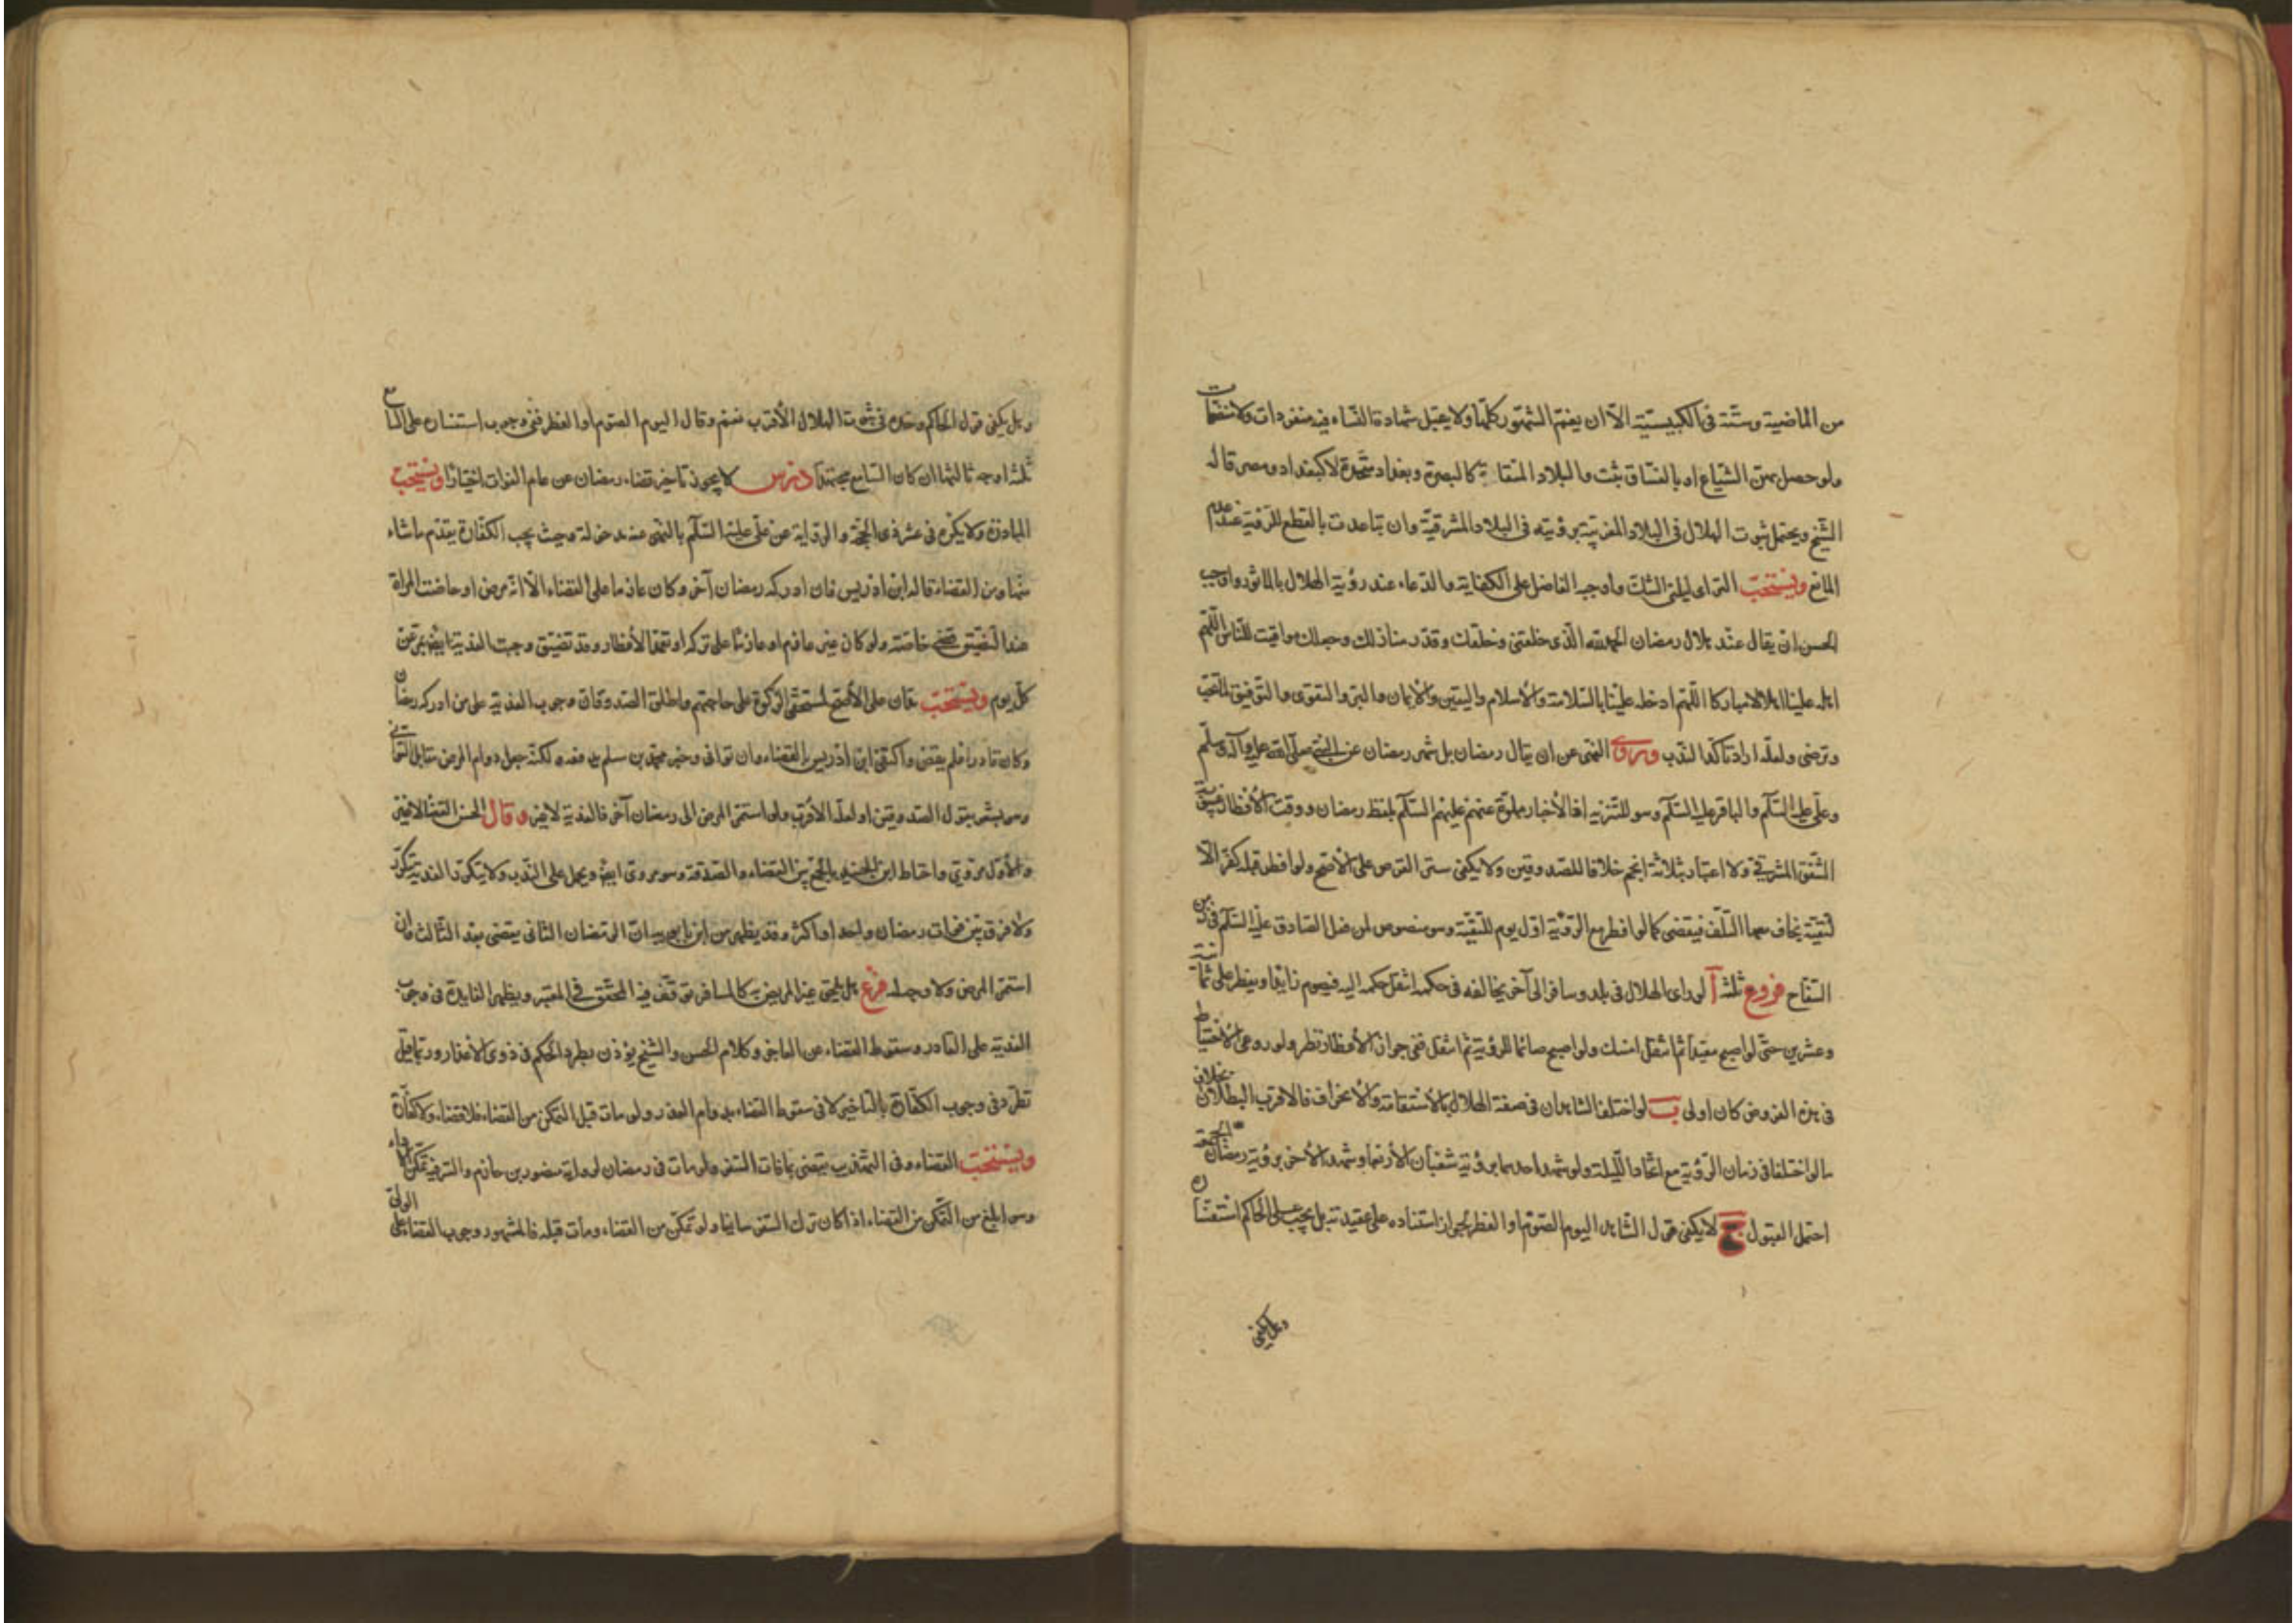 من الماضية وستة في الكبيسية الا ان يغم الشهور كلها ولا يقبل شهادة النساء فيه منفردات ولا منضمات
ولو حصل بهن الشياع او بالفساق ثبت والبلاد المتقاربة كالبصرة وبغداد متحدة لا كبغداد ومصر قاله
الشيخ ويحتمل ثبوت الهلال في البلاد المغربية برؤيته في البلاد المشرقية وان تباعدت بالقطع للرؤية عند عدم
المانع ويستحب الترائي ليلتي الشك واوجبه الفاضل على الكفاية والدعاء عند رؤية الهلال بالماثور واوجب
الحسن ان يقال عند هلال رمضان الحمد لله الذي خلقني وخلقك وقدر منازلك وجعلك مواقيت للناس اللهم
اهله علينا اهلالا مباركا اللهم ادخله علينا بالسلامة والاسلام واليقين والايمان والبر والتقوى والتوفيق لما تحب
وترضى ولعله اراد تاكد الندب وروى النهي عن ان يقال رمضان بل شهر رمضان عن النبي صلى الله عليه وآله وسلم
وعلي عليه السلم والباقر عليه السلم وهو للتنزيه اذ الاخبار مملوة عنهم عليهم السلم بلفظ رمضان ووقت الافطار غيبوبة
الشفق المشرقي ولا اعتبار بثلاثة انجم خلافا للصدوقين ولا يكفي ستر القرص على الاصح ولو افطر قبله كفر الا
لتقية يخاف معها التلف فيقضي كما لو افطر مع الرؤية اول يوم للتقية وهو منصوص من فعل الصادق عليه السلم في زمن
السفاح فروع ثلثة آ لو راى الهلال في بلد وسافر الى آخر يخالفه في حكمه انتقل حكمه اليه فيصوم زايدا ويفطر على ثمانية
وعشرين حتى لو اصبح معيدا ثم انتقل امسك ولو اصبح صائما للرؤية ثم انتقل ففي جواز الافطار نظر ولو روعي الاحتياط
في هذه الفروض كان اولى ب لو اختلف الشاهدان في صفة الهلال بالاستقامة والانحراف فالاقرب البطلان بخلاف
ما لو اختلفا في زمان الرؤية مع اتحاد الليلة ولو شهد احدهما برؤية شعبان الاربعا وشهد الآخر برؤية رمضان الجمعة
احتمل القبول ج لا يكفي قول الشاهد اليوم الصوم او الفطر لجواز استناده على عقيدته بل يجب على الحاكم استفساره
وهل يكفي
وهل يكفي قول الحاكم وحده في ثبوت الهلال الاقرب نعم ولو قال اليوم الصوم او الفطر ففي وجوب استفساره على السامع
ثلثة اوجه ثالثها ان كان السامع مجتهدا درس لا يجوز تاخير قضاء رمضان عن عام الفوات اختيارا ويستحب
المبادرة ولا يكره في عشر ذي الحجة والرواية عن علي عليه السلم بالنهي عنه مدخولة وحيث يجب الكفارة يقدم ما شاء
منها ومن القضاء قاله ابن ادريس فان ادركه رمضان آخر وكان عازما على القضاء الا انه مرض او حاضت المراة
عند التضيق قضى خاصة ولو كان غير عازم او عازما على تركه او تعمد الافطار وقد تضيق وجبت الفدية ايضا بمد عن
كل يوم ويستحب مدان على الاصح لمستحقي الزكوة على حاجتهم واطلق الصدوقان وجوب الفدية على من ادركه رمضان
وكان قادرا فلم يقض واكتفى ابن ادريس بالقضاء وان توانى وخبر محمد بن مسلم يدفعه لكنه جعل دوام المرض مقابل التواني
وهو يشعر بقول الصدوقين ولعله الاقرب ولو استمر المرض الى رمضان آخر فالفدية لا غير وقال الحسن القضاء لا غير
والاول مروي واحتاط ابن الجنيد بالجمع بين القضاء والصدقة وهو مروي ايضا ويحمل على الندب ولا يتكرر الفدية بتكرر
ولا فرق بين فوات رمضان واحد او اكثر وقد يظهر من ابن بابويه ان الرمضان الثاني يقضى بعد الثالث وان
استمر المرض ولا وجه له فرع هل يلحق غير المريض به كالمسافر توقف فيه المحقق في المعتبر ويظهر الفايدة في وجوب
الفدية على القادر وسقوط القضاء عن العاجز وكلام الحسن والشيخ يؤذن بطرد الحكم في ذوي الاعذار وربما قيل
تطرد في وجوب الكفارة بالتاخير لا في سقوط القضاء بدوام العذر ولو مات قبل التمكن من القضاء فلا قضاء ولا كفارة
ويستحب القضاء وفي التهذيب يقضى ما فات السفر ولو مات في رمضان لرواية منصور بن حازم والسر فيه تمكن الاداء
وهو ابلغ من التمكن من القضاء اذا كان ترك السفر سايغا ولو تمكن من القضاء ومات قبله فالمشهور وجوب القضاء على الولي